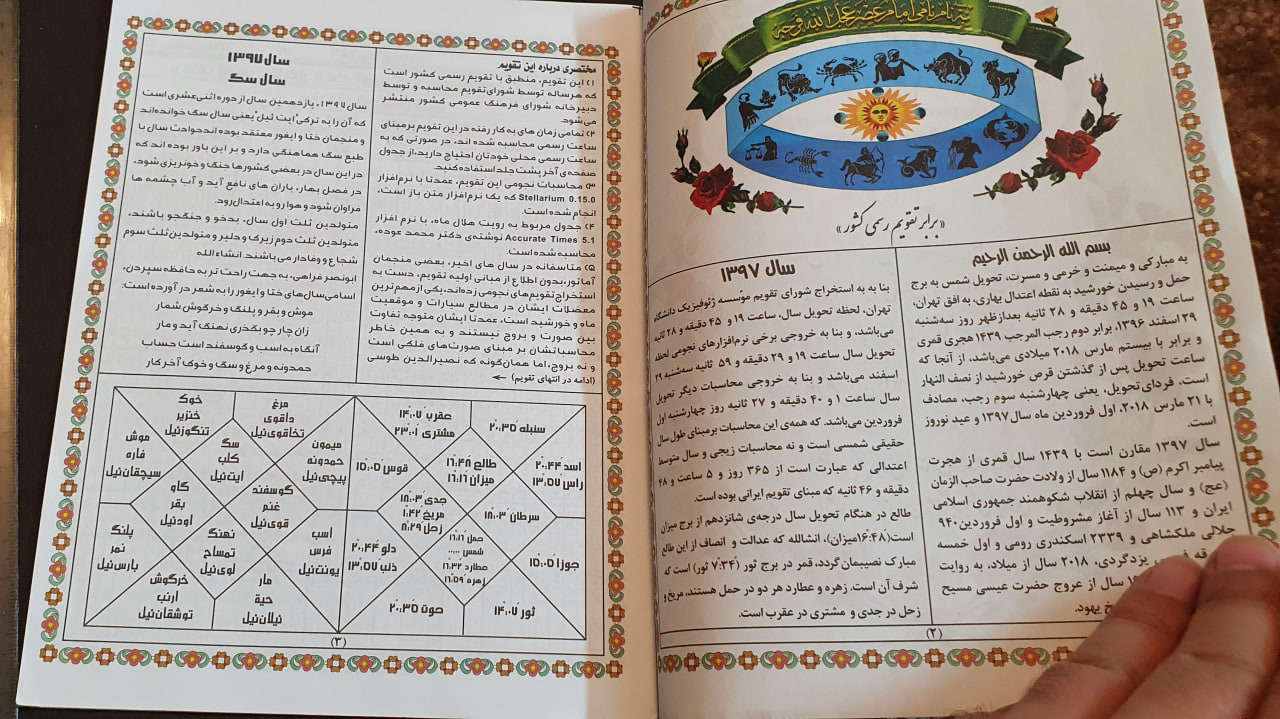 «برابر تقویم رسمی کشور»
بسم الله الرحمن الرحیم
به مبارکی و میمنت و خرمی و مسرت، تحویل شمس به برج
حمل و رسیدن خورشید به نقطه اعتدال بهاری، به افق تهران،
ساعت ۱۹ و ۴۵ دقیقه و ۲۸ ثانیه بعدازظهر روز سه‌شنبه
۲۹ اسفند ۱۳۹۶، برابر دوم رجب المرجب ۱۴۳۹ هجری قمری
و برابر با بیستم مارس ۲۰۱۸ میلادی می‌باشد، از آنجا که
ساعت تحویل پس از گذشتن قرص خورشید از نصف النهار
است، فردای‌تحویل، یعنی چهارشنبه سوم رجب، مصادف
با ۲۱ مارس ۲۰۱۸، اول فروردین ماه سال ۱۳۹۷ و عید نوروز
است.
سال ۱۳۹۷ مقارن است با ۱۴۳۹ سال قمری از هجرت
پیامبر اکرم (ص) و ۱۱۸۴ سال از ولادت حضرت صاحب الزمان
(عج) و سال چهلم از انقلاب شکوهمند جمهوری اسلامی
ایران و ۱۱۳ سال از آغاز مشروطیت و اول فروردین ۹۴۰
جلالی ملکشاهی و ۲۳۲۹ اسکندری رومی و اول خمسه
یزدگردی، ۲۰۱۸ سال از میلاد، به روایت
سال از عروج حضرت عیسی مسیح
یهود.
سال ۱۳۹۷
بنا به به استخراج شورای تقویم موسسه ژئوفیزیک دانشگاه
تهران، لحظه تحویل سال، ساعت ۱۹ و ۴۵ دقیقه و ۲۸ ثانیه
می‌باشد، و بنا به خروجی برخی نرم‌افزارهای نجومی لحظه
تحویل سال ساعت ۱۹ و ۲۹ دقیقه و ۵۹ ثانیه سه‌شنبه ۲۹
اسفند می‌باشد و بنا به خروجی محاسبات دیگر تحویل
سال ساعت ۱ و ۴۰ دقیقه و ۲۷ ثانیه روز چهارشنبه اول
فروردین می‌باشد. که همه‌ی این محاسبات بر‌مبنای طول سال
حقیقی شمسی است و نه محاسبات زیجی و سال متوسط
اعتدالی که عبارت است از ۳۶۵ روز و ۵ ساعت و ۴۸
دقیقه و ۴۶ ثانیه که مبنای تقویم ایرانی بوده است.
طالع در هنگام تحویل سال درجه‌ی شانزدهم از برج میزان
است(۱۶:۴۸میزان)، انشالله که عدالت و انصاف از این طالع
مبارک نصیبمان گردد، قمر در برج ثور (۷:۳۴ ثور) است که
شرف آن است. زهره و عطارد هر دو در حمل هستند، مریخ و
زحل در جدی و مشتری در عقرب است.
(۲)
مختصری درباره این تقویم
۱) این تقویم، منطبق با تقویم رسمی کشور است
که هرساله توسط شورای‌تقویم محاسبه و توسط
دبیرخانه شورای فرهنگ عمومی کشور منتشر
می‌شود.
۲) تمامی زمان های به کار رفته در این تقویم برمبنای
ساعت رسمی محاسبه شده اند، در صورتی که به
ساعت رسمی محلی خودتان احتیاج دارید، از جدول
صفحه‌ی آخر پشت جلد استفاده کنید.
۳) محاسبات نجومی این تقویم، عمدتا با نرم‌افزار
Stellarium 0.15.0 که یک نرم‌افزار متن باز است،
انجام شده است.
۴) جدول مربوط به رویت هلال ماه، با نرم افزار
Accurate Times 5.1 نوشته‌ی دکتر محمد عوده،
محاسبه شده است.
۵) متاسفانه در سال های اخیر، بعضی منجمان
آماتور، بدون اطلاع از مبانی اولیه تقویم، دست به
استخراج تقویم‌های نجومی زده‌اند، یکی از مهم ترین
معضلات ایشان در مطالع سیارات و موقعیت
ماه و خورشید است، عمدتا ایشان متوجه تفاوت
بین صورت و بروج نیستند و به همین خاطر
محاسباتشان بر مبنای صورت‌های فلکی است
و نه بروج، اما همان‌گونه که نصیرالدین طوسی
(ادامه در انتهای تقویم)
سال ۱۳۹۷
سال سگ
سال ۱۳۹۷، یازدهمین سال از دوره اثنی‌عشری است
که آن را به ترکی ایت ئیل یعنی سال سگ خوانده‌اند
و منجمان ختا و ایغور معتقد بوده اند حوادث سال با
طبع سگ هماهنگی دارد و بر این باور بوده اند که
در این سال در بعضی کشورها جنگ و خونریزی شود،
در فصل بهار، باران های نافع آید و آب چشمه ها
فراوان شود و هوا رو به اعتدال رود.
متولدین ثلث اول سال، بدخو و جنگجو باشند،
متولدین ثلث دوم زیرک و دلیر و متولدین ثلث سوم
شجاع و وفادار می باشند. انشاء الله
ابونصر فراهی، به جهت راحت تر به حافظه سپردن،
اسامی‌سال‌های ختا و ایغور را به شعر در آورده است:
موش و بقر و پلنگ و خرگوش شمار
زان چار چو بگذری نهنگ آید و مار
آنگاه به اسب و گوسفند است حساب
حمدونه و مرغ و سگ و خوک آخر کار
سنبله ۲۰:۳۵
عقرب ۱۴:۰۷
مشتری ۲۳:۰۱
اسد ۲۰:۴۴
راس ۱۳:۵۷
طالع ۱۶:۴۸
میزان ۱۶:۱۶
قوس ۱۵:۰۵
سرطان ۱۸:۰۳
جدی ۱۸:۰۳
مریخ ۱:۴۲
زحل ۸:۲۹
جوزا ۱۵:۰۵
حمل ۱۶:۱۶
شمس ۰۰:۰۰
عطارد ۱۶:۳۲
زهره ۱۶:۵۹
دلو ۲۰:۴۴
ذنب ۱۳:۵۷
ثور ۱۴:۰۷
حوت ۲۰:۳۵
مرغ
داقوی
تخاقوی‌ئیل
خوک
خنزیر
تنگوزئیل
میمون
حمدونه
پیچی‌ئیل
سگ
کلب
ایت‌ئیل
موش
فاره
سیچقان‌ئیل
گوسفند
غنم
قوی‌ئیل
گاو
بقر
اودئیل
اسب
فرس
یونت‌ئیل
نهنگ
تمساح
لوی‌ئیل
پلنگ
نمر
بارس‌ئیل
مار
حیة
ئیلان‌ئیل
خرگوش
ارنب
توشقان‌ئیل
(۳)